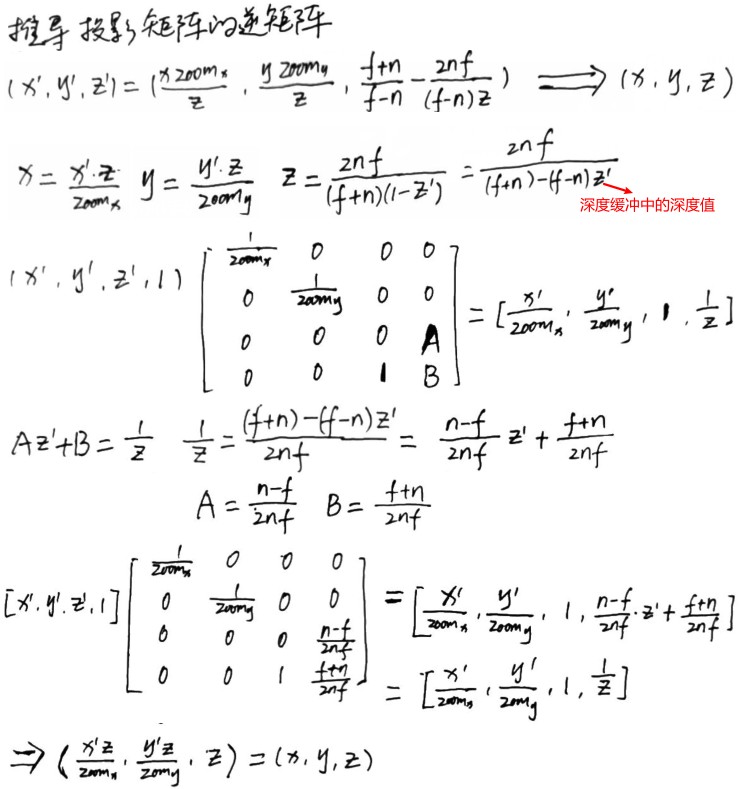 推导投影矩阵的逆矩阵
(x', y', z') = (x zoomx / z, y zoomy / z, (f+n)/(f-n) - 2nf/((f-n)z)) ⟹ (x, y, z)
x = x'·z / zoomx y = y'·z / zoomy z = 2nf/((f+n)(1-z')) = 2nf/((f+n)-(f-n)z')
深度缓冲中的深度值
(x', y', z', 1) [1/zoomx 0 0 0
0 1/zoomy 0 0
0 0 0 A
0 0 1 B] = [x'/zoomx, y'/zoomy, 1, 1/z]
Az'+B = 1/z 1/z = ((f+n)-(f-n)z')/2nf = (n-f)/2nf z' + (f+n)/2nf
A = (n-f)/2nf B = (f+n)/2nf
[x', y', z', 1] [1/zoomx 0 0 0
0 1/zoomy 0 0
0 0 0 (n-f)/2nf
0 0 1 (f+n)/2nf] = [x'/zoomx, y'/zoomy, 1, (n-f)/2nf·z' + (f+n)/2nf]
= [x'/zoomx, y'/zoomy, 1, 1/z]
⇒ (x'z/zoomx, y'z/zoomy, z) = (x, y, z)